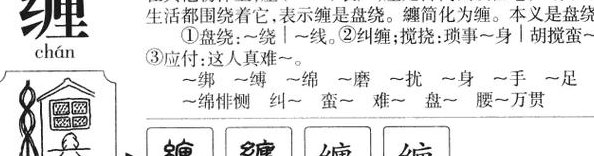 缠
chán
生活都围绕着它，表示缠是盘绕。纏简化为缠。本义是盘绕
①盘绕：～绕｜～线。②纠缠；搅挠：琐事～身｜胡搅蛮～
③应付：这人真难～。
～绑 ～缚 ～绵 ～磨 ～扰 ～身 ～手 ～足
～绵悱恻 纠～ 蛮～ 难～ 盘～ 腰～万贯